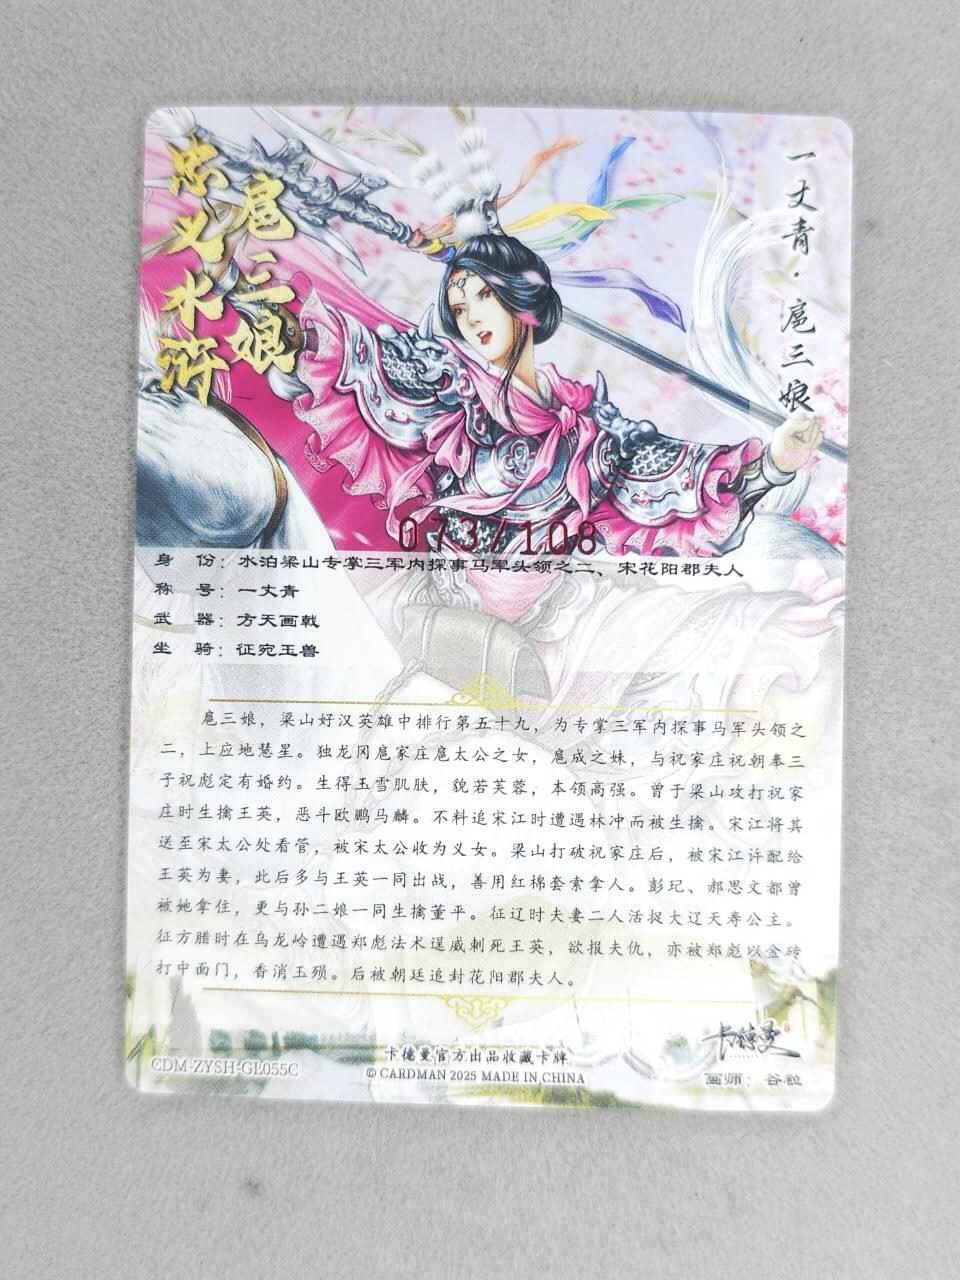 忠义水浒
扈三娘
一丈青·扈三娘
073/108
身 份：水泊梁山专掌三军内探事马军头领之二、宋花阳郡夫人
称 号：一丈青
武 器：方天画戟
坐 骑：征宛玉兽
扈三娘，梁山好汉英雄中排行第五十九，为专掌三军内探事马军头领之
二，上应地慧星。独龙冈扈家庄扈太公之女，扈成之妹，与祝家庄祝朝奉三
子祝彪定有婚约。生得玉雪肌肤，貌若芙蓉，本领高强。曾于梁山攻打祝家
庄时生擒王英，恶斗欧鹏马麟。不料追宋江时遭遇林冲而被生擒。宋江将其
送至宋太公处看管，被宋太公收为义女。梁山打破祝家庄后，被宋江许配给
王英为妻，此后多与王英一同出战，善用红棉套索拿人。彭玘、郝思文都曾
被她拿住，更与孙二娘一同生擒董平。征辽时夫妻二人活捉大辽天寿公主。
征方腊时在乌龙岭遭遇郑彪法术逞威刺死王英，欲报夫仇，亦被郑彪以金砖
打中面门，香消玉殒。后被朝廷追封花阳郡夫人。
卡德曼
CDM-ZYSH-GL055C
卡德曼官方出品收藏卡牌
© CARDMAN 2025 MADE IN CHINA
画师：谷粒